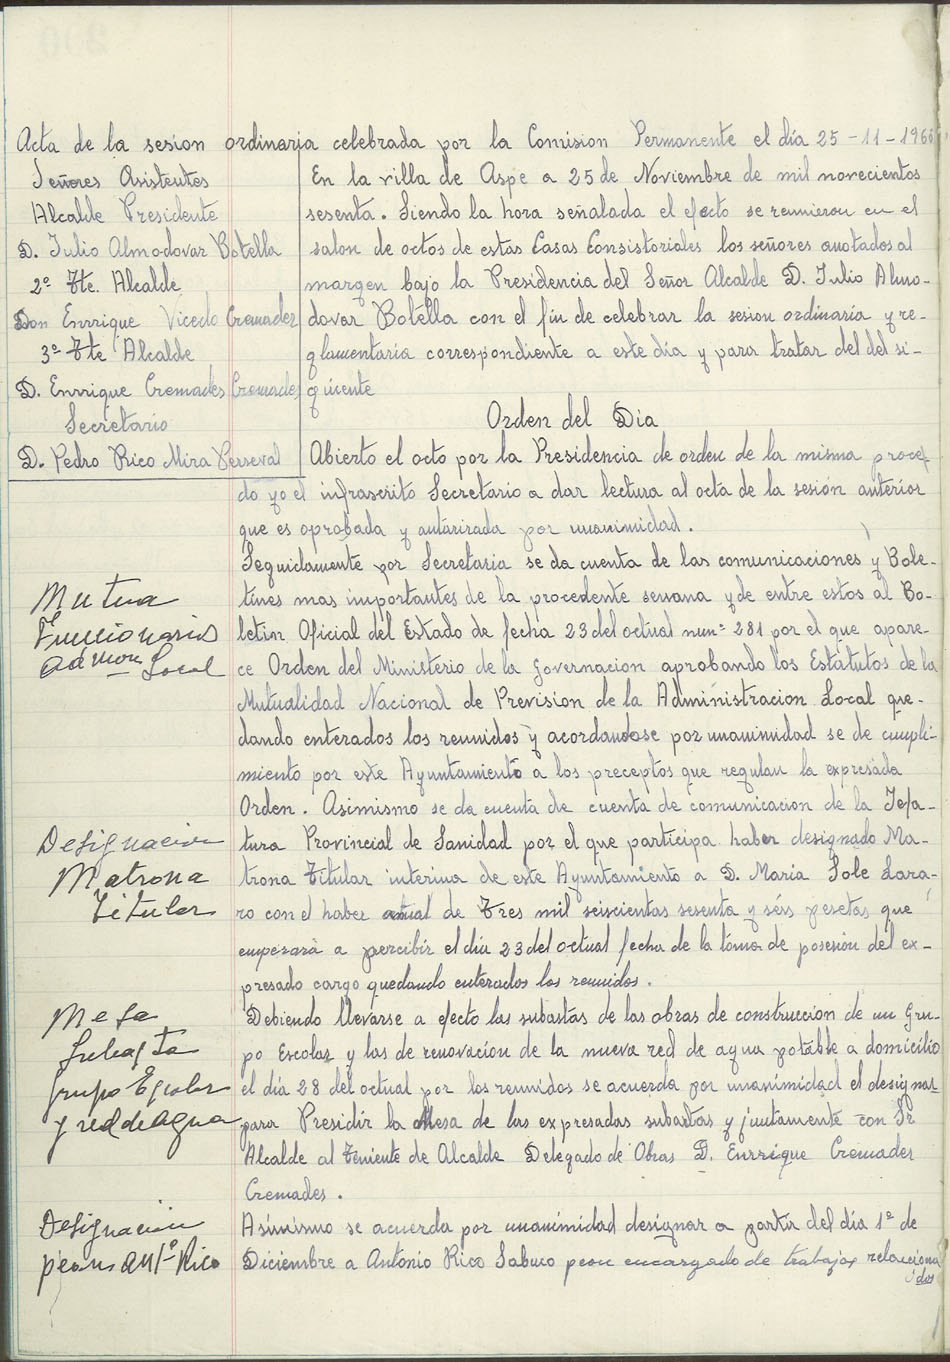 Acta de la sesion ordinaria celebrada por la Comision Permanente el día 25-11-1960
Señores Asistentes
Alcalde Presidente
D. Julio Almodovar Botella
2º Tte. Alcalde
Don Enrrique Vicedo Cremades
3º Tte Alcalde
D. Enrrique Cremades Cremades
Secretario
D. Pedro Rico Mira Perseval
En la villa de Aspe a 25 de Noviembre de mil novecientos
sesenta. Siendo la hora señalada el efecto se reunieron en el
salon de actos de estas Casas Consistoriales los señores anotados al
margen bajo la Presidencia del Señor Alcalde D. Julio Almo-
dovar Botella con el fin de celebrar la sesion ordinaria y re-
glamentaria correspondiente a este día y para tratar del del si-
guiente
Orden del Día
Abierto el acto por la Presidencia de orden de la misma proce-
do yo el infrascrito Secretario a dar lectura al acta de la sesión anterior
que es aprobada y autorizada por unanimidad.
Mutua
Funcionarios
admon Local
Seguidamente por Secretaria se da cuenta de las comunicaciones y Bole-
tines mas importantes de la procedente semana y de entre estos al Bo-
letin Oficial del Estado de fecha 23 del actual num- 281 por el que apare-
ce Orden del Ministerio de la Governacion aprobando los Estatutos de la
Mutualidad Nacional de Prevision de la Administracion Local que-
dando enterados los reunidos y acordandose por unanimidad se de cumpli-
miento por este Ayuntamiento a los preceptos que regulan la expresada
Orden. Asimismo se da cuenta de cuenta de comunicacion de la Jefa-
Designacion
Matrona
Titular
tura Provincial de Sanidad por el que participa haber designado Ma-
trona Titular interina de este Ayuntamiento a D. Maria Sole Lara-
ro con el haber anual de Tres mil seiscientas sesenta y séis pesetas que
empezará a percibir el día 23 del actual fecha de la toma de posesión del ex-
presado cargo quedando enterados los reunidos.
Mesa
Subasta
Grupo Escolar
y red de agua
Debiendo llevarse a efecto las subastas de las obras de construccion de un Gru-
po Escolar y las de renovacion de la nueva red de agua potable a domicilio
el día 28 del actual por los reunidos se acuerda por unanimidad el designar
para Presidir la Mesa de las expresadas subastas y juntamente con Sr
Alcalde al Teniente de Alcalde Delegado de Obras D. Enrrique Cremades
Cremades.
Designacion
peon Antº Rico
Asimismo se acuerda por unanimidad designar a partir del día 1º de
Diciembre a Antonio Rico Sabuco peon encargado de trabajos relaciona
dos